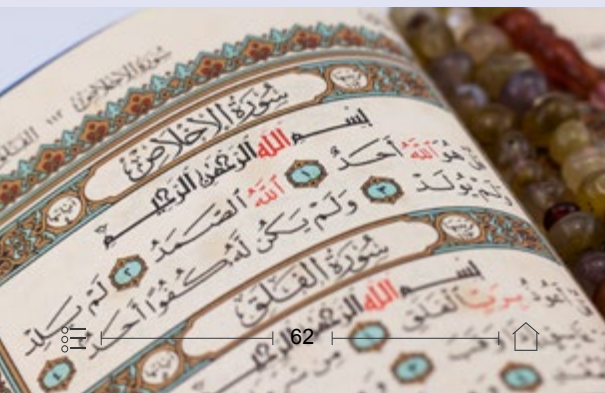 سُورَةُ الإِخْلَاصِ
سُورَةُ الإِخْلَاصِ
بِسْمِ اللَّهِ الرَّحْمَٰنِ الرَّحِيمِ
قُلْ هُوَ اللَّهُ أَحَدٌ ١ اللَّهُ الصَّمَدُ ٢ لَمْ يَلِدْ
وَلَمْ يُولَدْ ٣ وَلَمْ يَكُن لَّهُ كُفُوًا أَحَدٌ ٤
سُورَةُ الفَلَقِ
بِسْمِ اللَّهِ الرَّحْمَٰنِ الرَّحِيمِ
أَعُوذُ بِرَبِّ الْفَلَقِ مِن شَرِّ
62